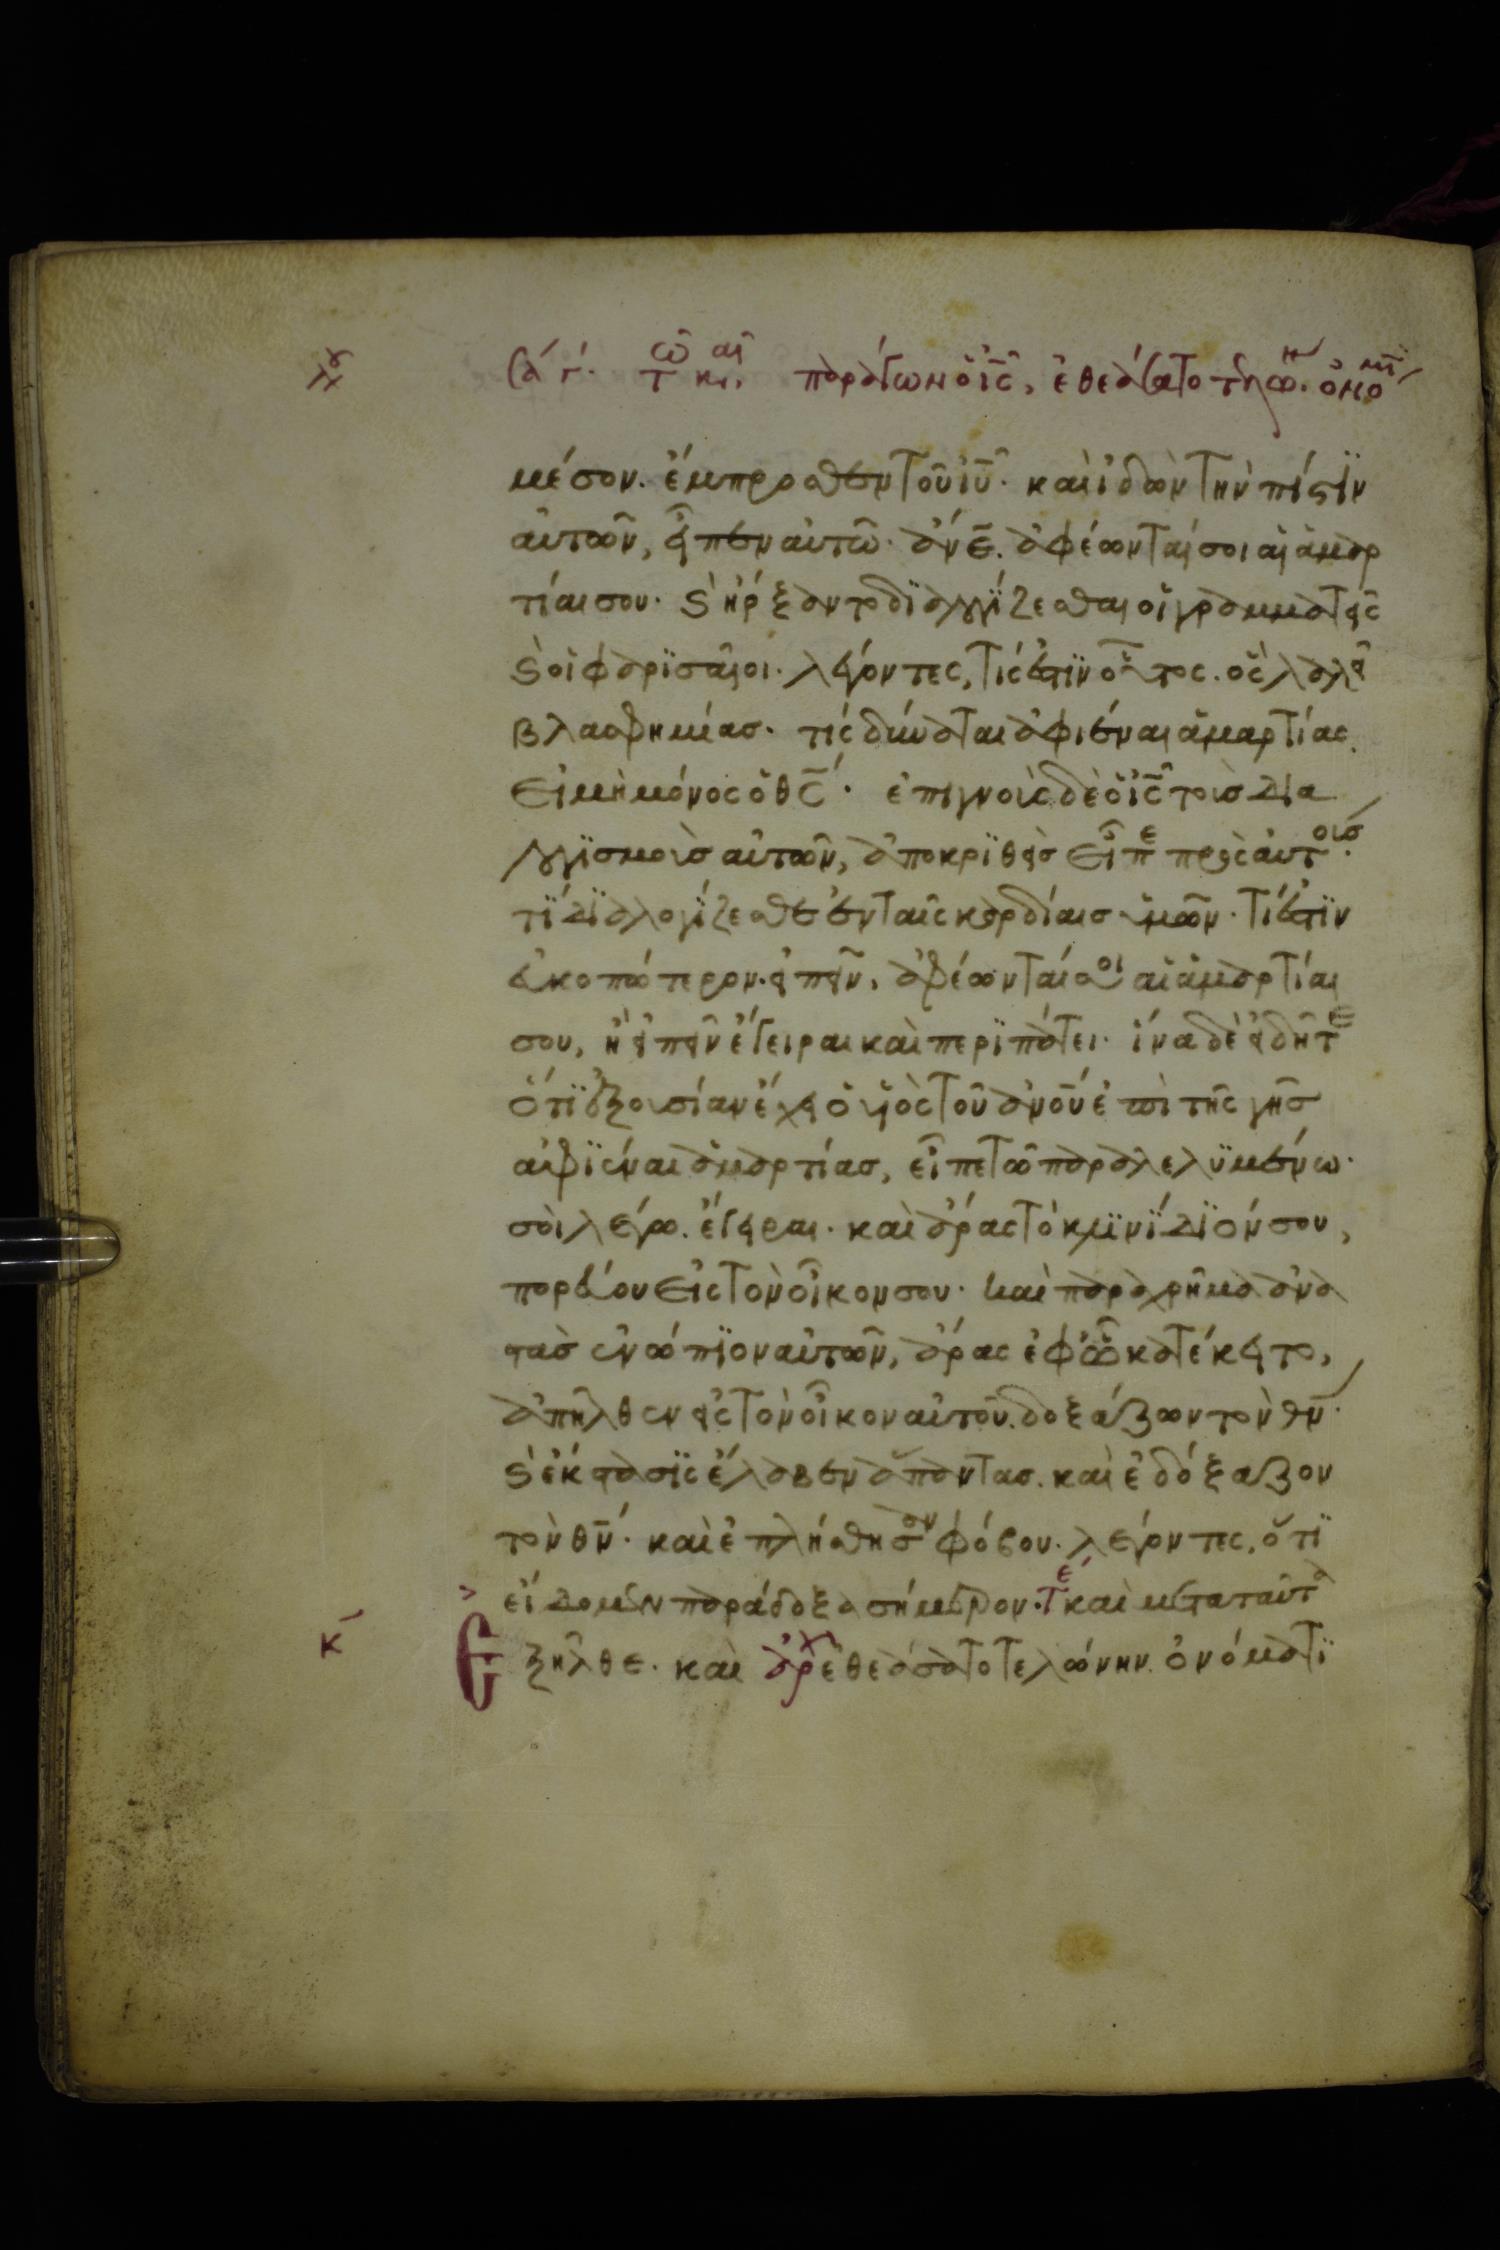 Σα γ. τω και. παράγων ὁ ις, ἐθεάσατο τελων. ὀνομτι
μέσον. ἔμπροσθεν τοῦ ιυ. καὶ ἰδὼν τὴν πίστϊν
αὐτῶν, εἶπεν αὐτῶ. ανε. ἀφέωνταί σοι αἱ ἁμαρ
τίαι σου. καὶ ἤρξαντο διαλογΐζεσθαι οἱ γραμματεῖς
καὶ οἱ φαρϊσαῖοι. λέγοντες, τίς ἐστϊν οὗτος. ὃς λαλεῖ
βλασφημίας. τίς δύναται ἀφιέναι ἁμαρτίας.
εἰ μὴ μόνος ὁ θς. ἐπιγνοὺς δὲ ὁ ις τοὺς δια
λογϊσμοὺς αὐτῶν, ἀποκρϊθεὶς εἶπε πρὸς αὐτούς.
τΐ διαλογΐζεσθε ἐν ταῖς καρδίαις ὑμῶν. τί ἐστϊν
εὐκοπώτερον. εἰπεῖν, ἀφέωνταί σοι αἱ ἁμαρτίαι
σου, ἢ εἰπεῖν ἔγειραι καὶ περϊπάτει. ἵνα δὲ εἰδῆτε
ὅτϊ ἐξουσίαν ἔχει ὁ υἱὸς τοῦ ανου ἐπὶ τῆς γῆς
ἀφϊέναι ἁμαρτίας, εἶπε τῶ παραλελϋμένω.
σοὶ λέγω. ἔγειραι. καὶ ἄρας τὸ κλϊνΐδϊόν σου,
πορεύου εἰς τὸν οἶκον σου. καὶ παραχρῆμα ἀνα
στὰς ἐνώπϊον αὐτῶν, ἄρας ἐφ' ὧ κατέκειτο,
ἀπῆλθεν εἰς τὸν οἶκον αὐτοῦ. δοξάζων τὸν θν.
καὶ ἔκστασϊς ἔλαβεν ἅπαντας. καὶ ἐδόξαζον
τὸν θν. καὶ ἐπλήσθησαν φόβου. λέγοντες, ὅτϊ
εἴδομεν παράδοξα σήμερον. τε καὶ μετὰ ταῦτα
κ Ἐξῆλθε. καὶ αρχ ἐθεάσατο τελώνην. ὀνόματϊ